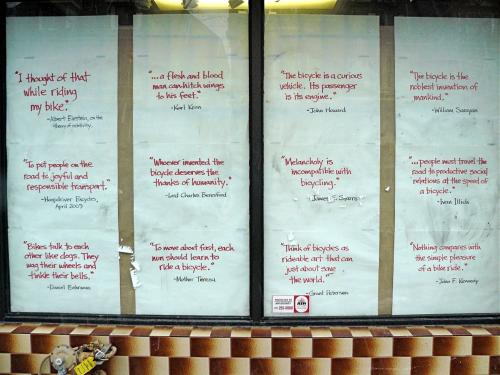 "I thought of that
while riding
my bike."
-Albert Einstein, on the
theory of relativity.
"To put people on the
road to joyful and
responsible transport."
April 2009
"Bikes talk to each
other like dogs. They
wag their wheels and
tinkle their bells."
-Daniel Behrman
"...a flesh and blood
man can hitch wings
to his feet."
-Karl Kron
"Whoever invented the
bicycle deserves the
thanks of humanity."
-Lord Charles Beresford
"To move about fast, each
nun should learn to
ride a bicycle."
-Mother Teresa
"The bicycle is a curious
vehicle. Its passenger
is its engine."
-John Howard
"Melancholy is
incompatible with
bicycling."
-James E. Starrs
"Think of bicycles as
rideable art that can
just about save
the world."
-Grant Petersen
"The bicycle is the
noblest invention of
mankind."
-William Saroyan
"...people must travel the
road to productive social
relations at the speed of
a bicycle."
-Ivan Illich
"Nothing compares with
the simple pleasure
of a bike ride."
-John F. Kennedy